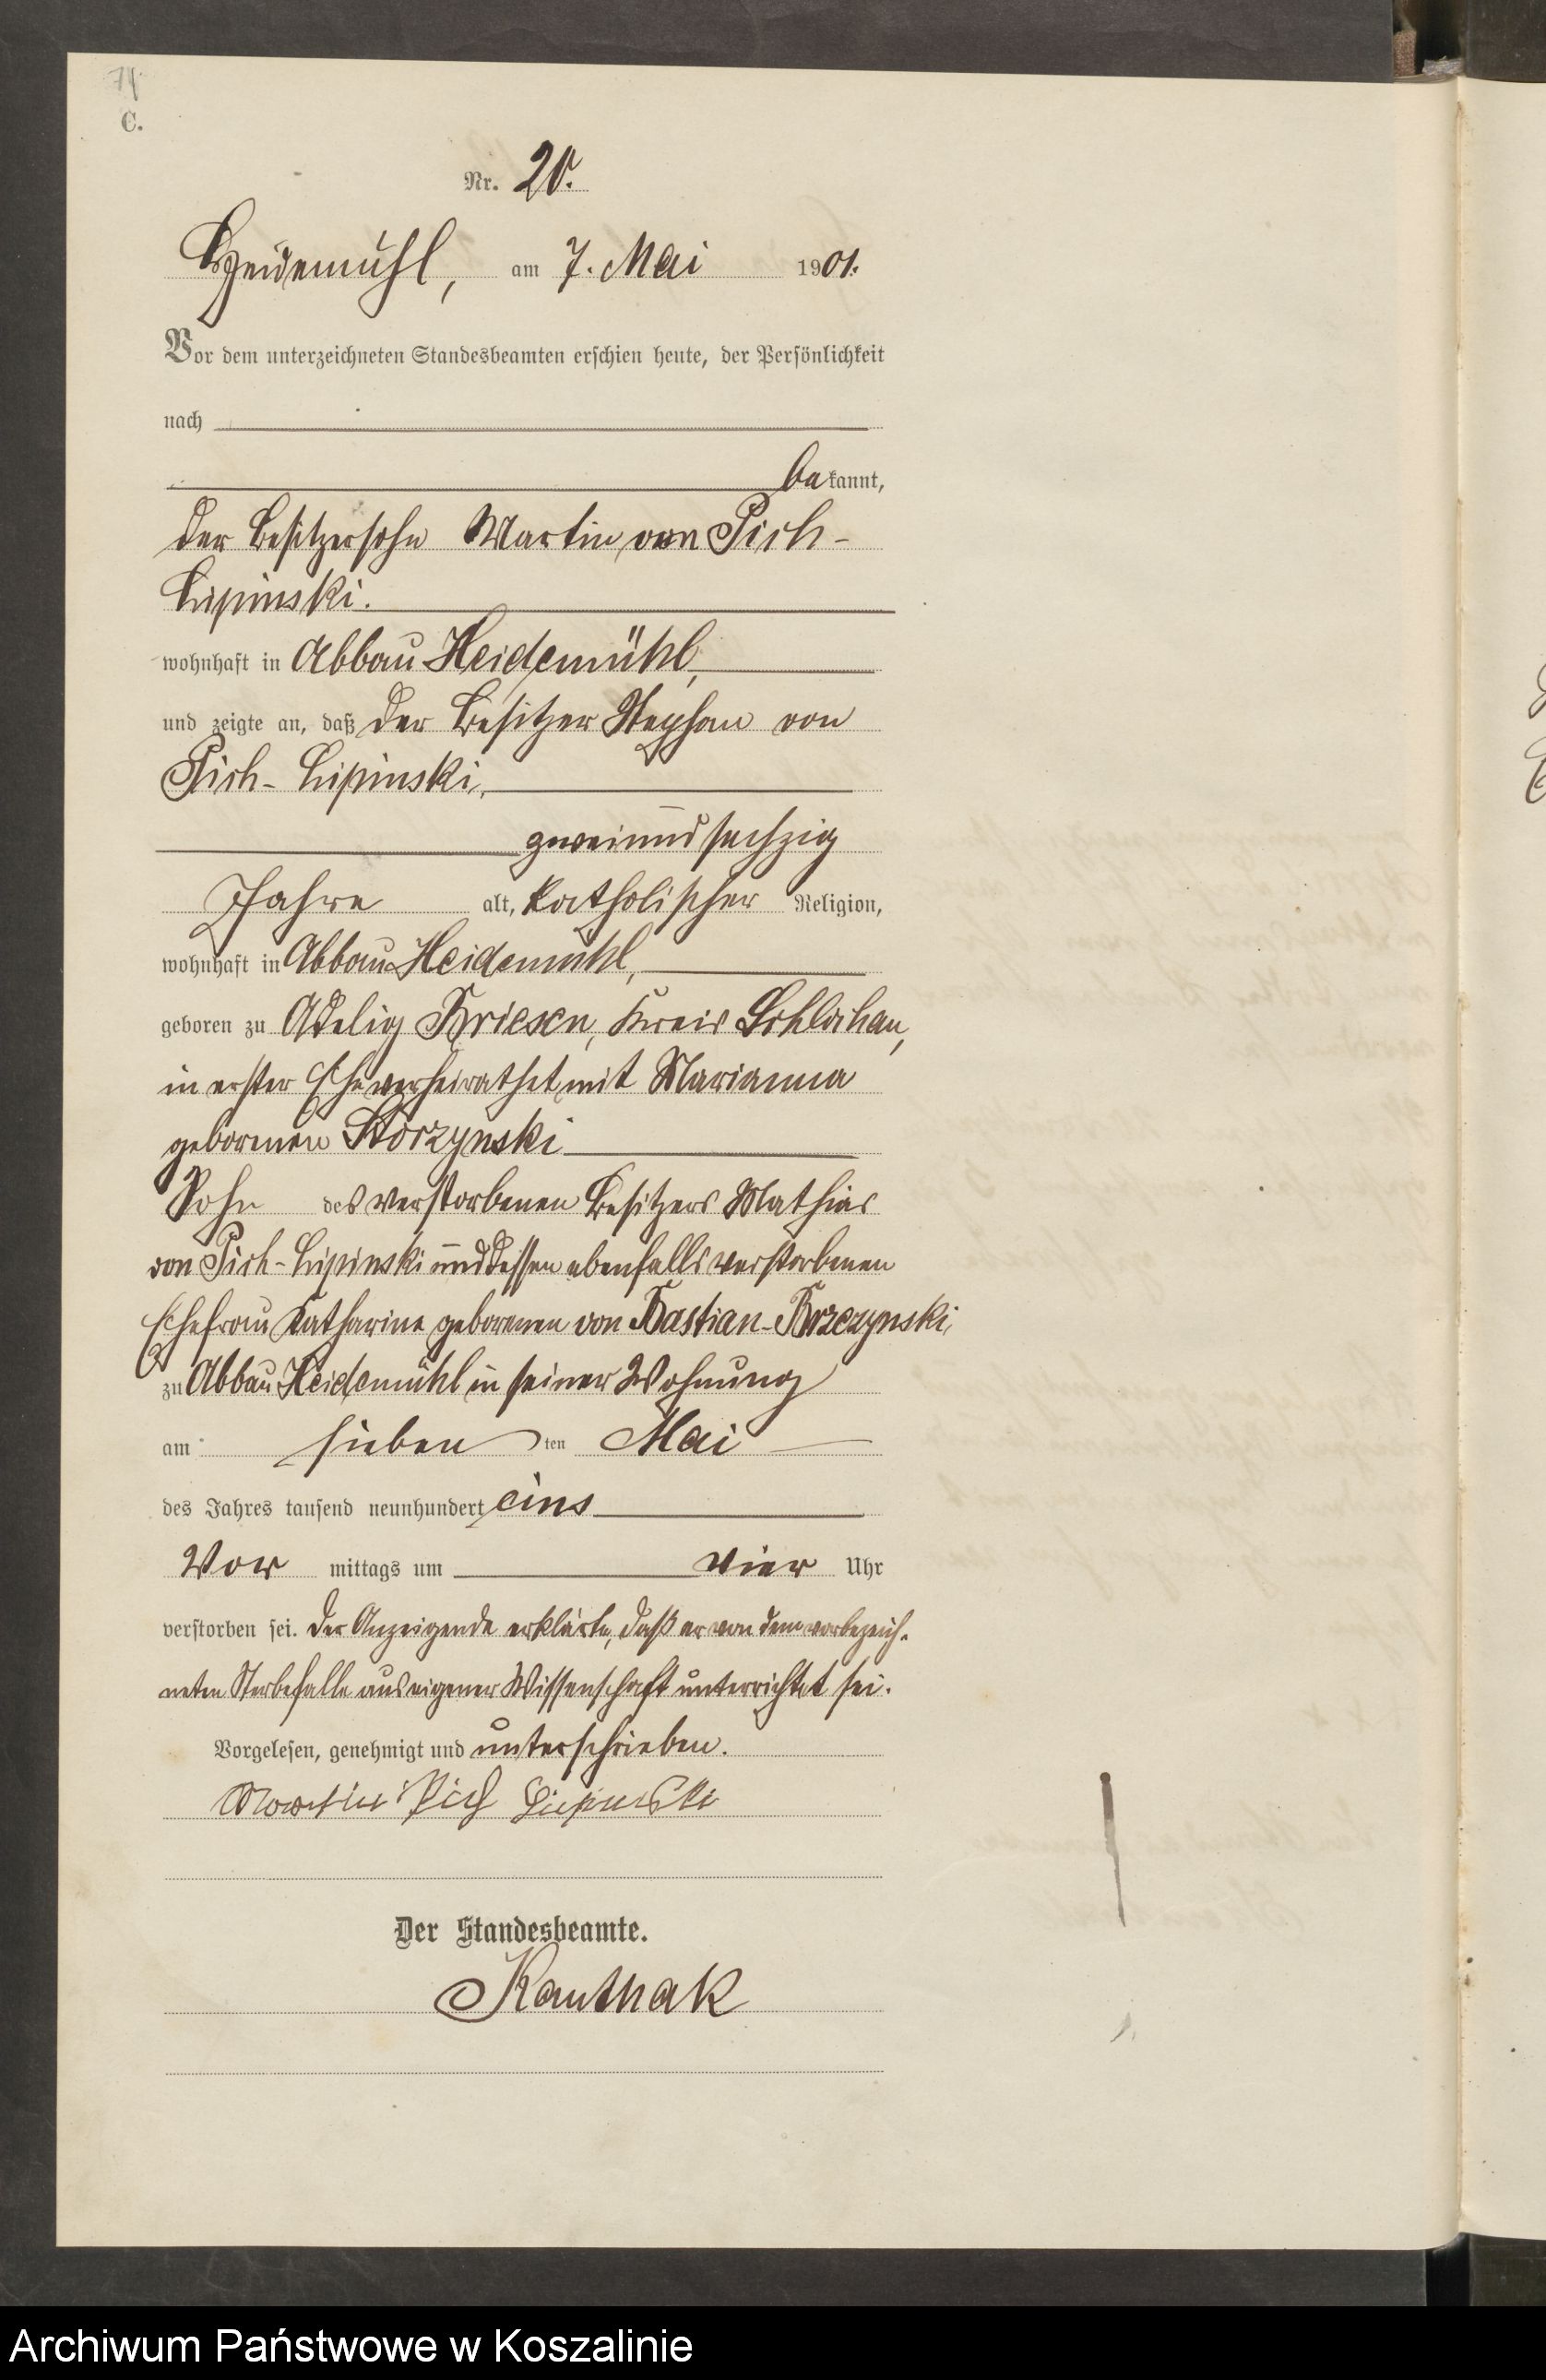 74
C.
Nr. 20.
Heidemühl, am 7. Mai 1901.
Vor dem unterzeichneten Standesbeamten erschien heute, der Persönlichkeit
nach
bekannt,
der Besitzersohn Martin von Pich-
Lipinski.
wohnhaft in Abbau Heidemühl,
und zeigte an, daß der Besitzer Stephan von
Pich-Lipinski,
zweiundsechzig
Jahre alt, katholischer Religion,
wohnhaft in Abbau Heidemühl,
geboren zu Adelig Briesen, Kreis Schlochau,
in erster Ehe verheirathet mit Marianna
geborenen Skorzynski
Sohn des verstorbenen Besitzers Mathias
von Pich-Lipinski und dessen ebenfalls verstorbenen
Ehefrau Katharine geborenen von Bastian-Brzezynski,
zu Abbau Heidemühl in seiner Wohnung
am sieben ten Mai
des Jahres tausend neunhundert eins
Vor mittags um vier Uhr
verstorben sei. Der Anzeigende erklärte, daß er von dem vorbezeich-
neten Sterbefalle aus eigener Wissenschaft unterrichtet sei.
Vorgelesen, genehmigt und unterschrieben.
Martin Pich Lipinski
Der Standesbeamte.
Kanthak
Archiwum Państwowe w Koszalinie